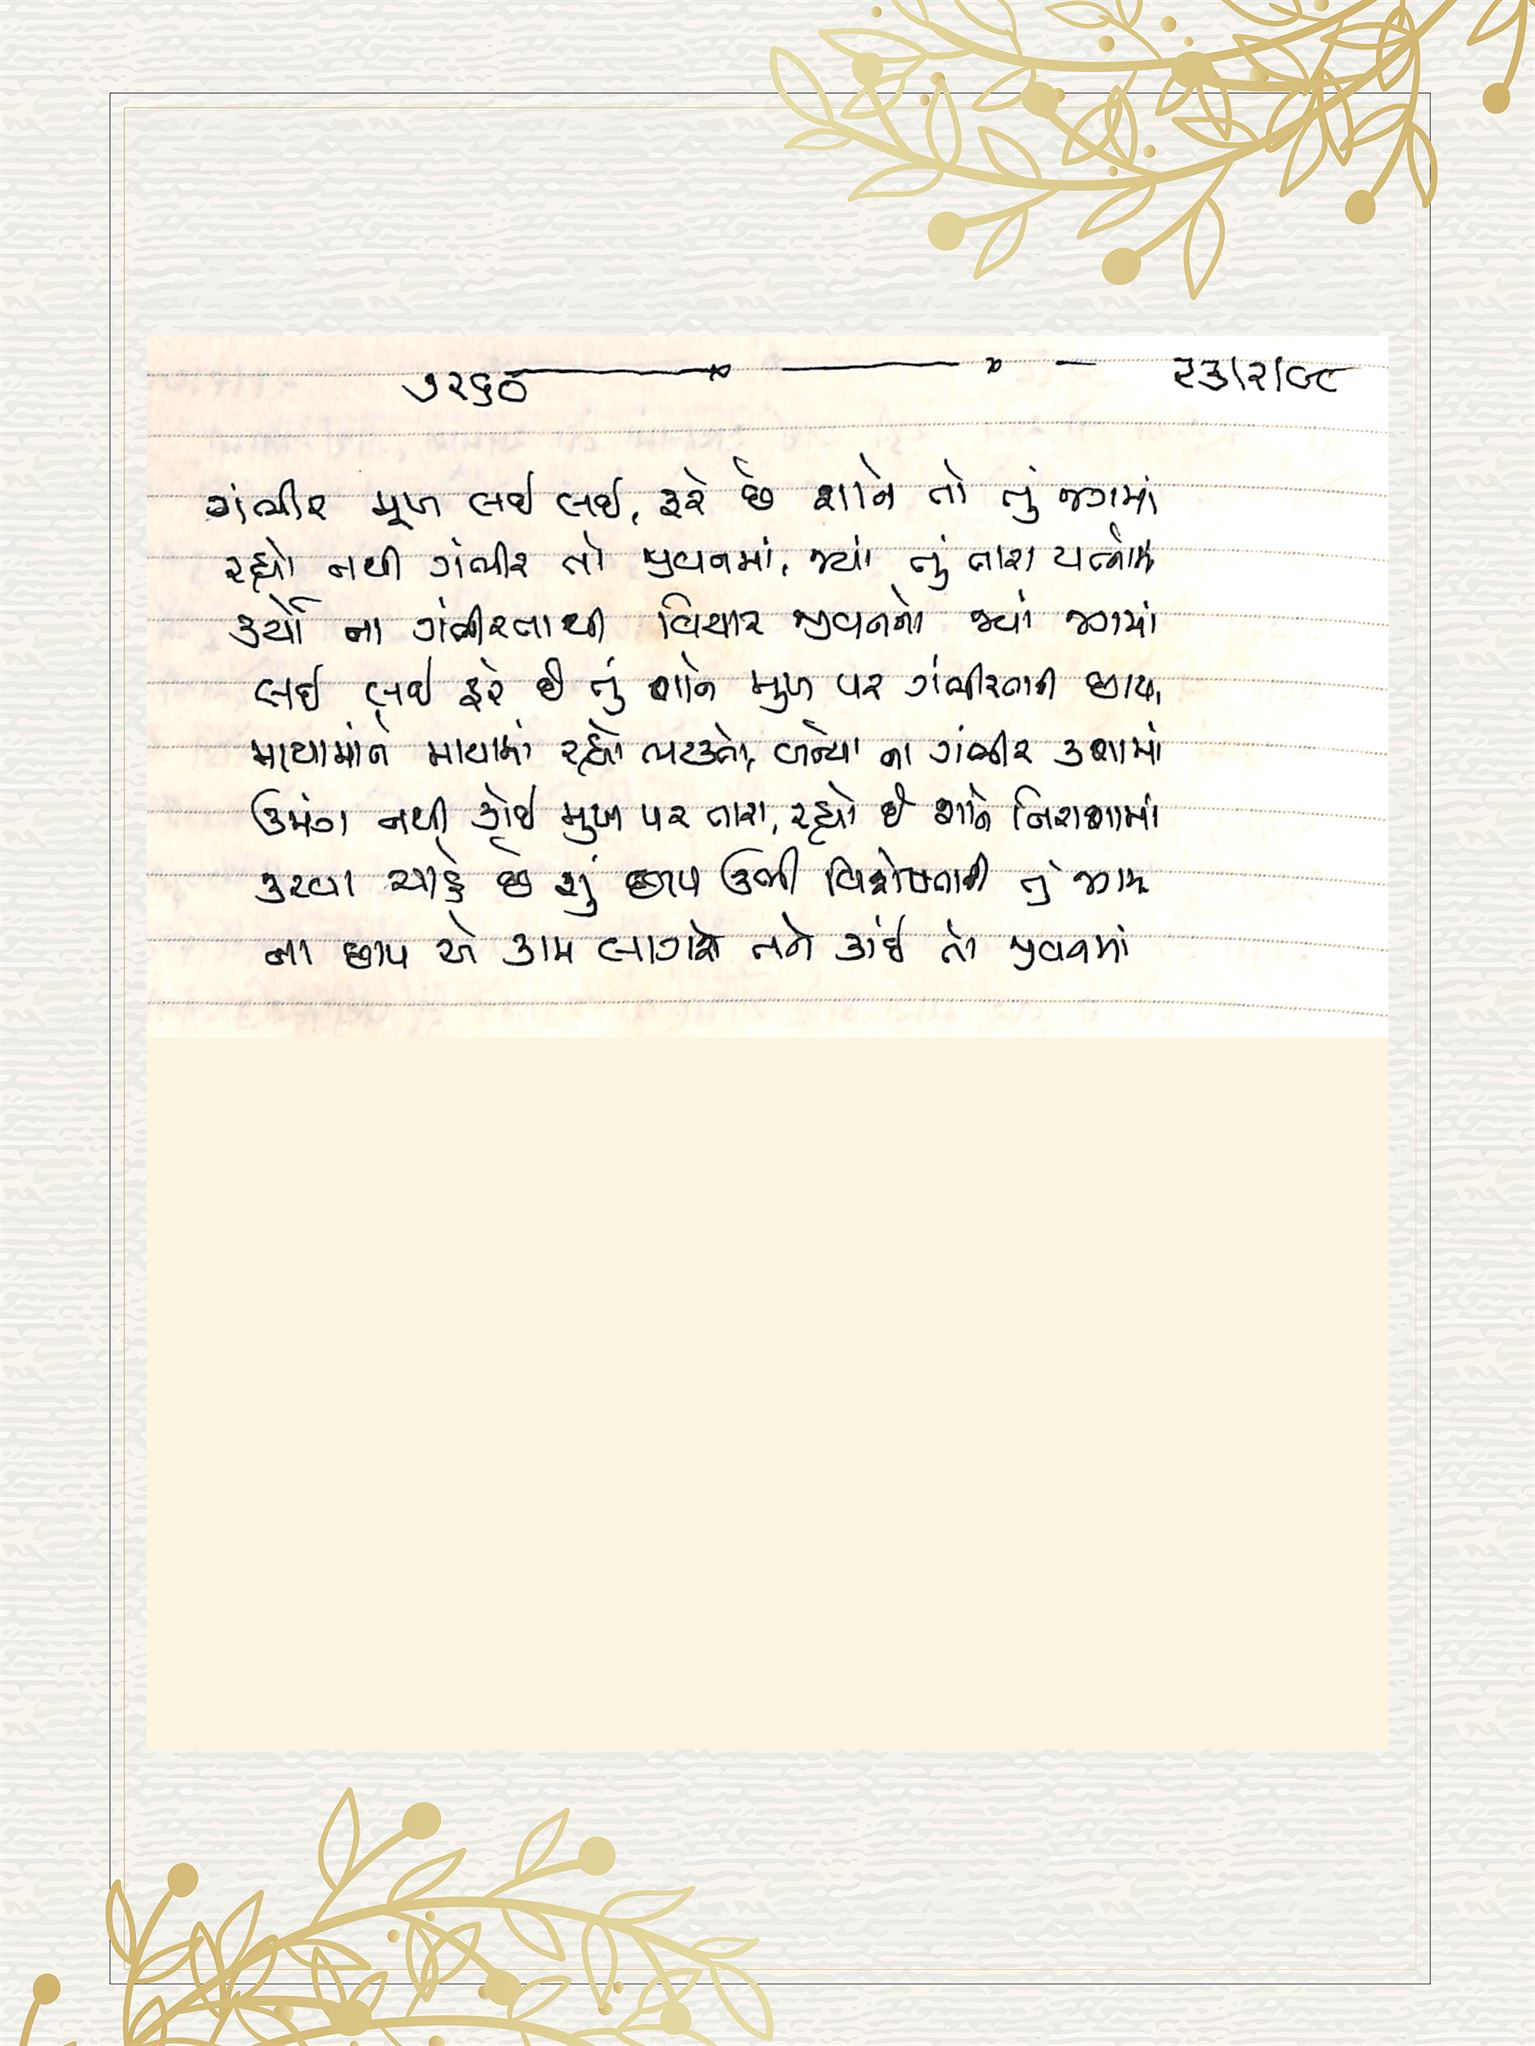 ૭૨૬૦ ૨૩/૨/૯૮
ગંભીર મૂખ લઈ લઈ, ફરે છે શાને તો તું જગમાં
રહ્યો નથી ગંભીર તો જીવનમાં, જ્યાં તું તારા યત્નોમાં
કર્યો ના ગંભીરતાથી વિચાર જીવનનો જ્યાં જગમાં
લઈ લઈ ફરે છે તું શાને મુખ પર ગંભીરતાની છાપ,
માયામાંને માયામાં રહ્યો ભટકતો, બન્યો ના ગંભીર કશામાં
ઉમંગ નથી કોઈ મુખ પર તારા, રહ્યો છે શાને નિરાશામાં
કરવા ચાહે છે શું છાપ ઉભી વિશેષતાની તું જગમાં
ના છાપ એ કામ લાગશે તને કાંઈ તો જીવનમાં